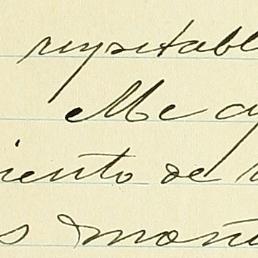 respetabl
Me a
iento de
s mañ